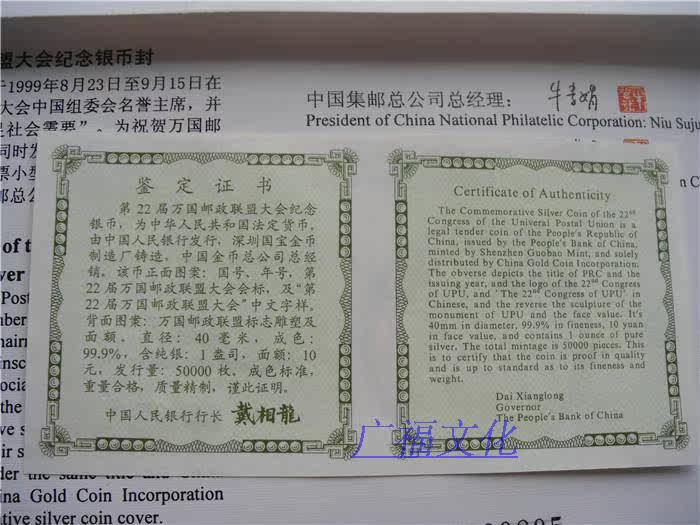 盟大会纪念银币封
于1999年8月23日至9月15日在
大会中国组委会名誉主席，并
民社会需要”。为祝贺万国邮
同时发
票小型
邮总公
中国集邮总公司总经理：
President of China National Philatelic Corporation: Niu Suju
鉴定证书
第22届万国邮政联盟大会纪念
银币，为中华人民共和国法定货币。
由中国人民银行发行，深圳国宝金币
制造厂铸造，中国金币总公司总经
销。该币正面图案：国号、年号，第
22届万国邮政联盟大会会标，及“第
22届万国邮政联盟大会”中文字样。
背面图案：万国邮政联盟标志雕塑及
面额。直径：40毫米，成色：
99.9%，含纯银：1盎司，面额：10
元，发行量：50000枚。成色标准，
重量合格，质量精制，谨此证明。
中国人民银行行长 戴相龍
Certificate of Authenticity
The Commemorative Silver Coin of the 22nd
Congress of the Univeral Postal Union is a
legal tender coin of the People's Republic of
China, issued by the People's Bank of China,
minted by Shenzhen Guobao Mint, and solely
distributed by China Gold Coin Incorporation.
The obverse depicts the title of PRC and the
issuing year, and the logo of the 22nd Congress
of UPU, and 'The 22nd Congress of UPU' in
Chinese, and the reverse the sculpture of the
monument of UPU and the face value. It's
40mm in diameter, 99.9% in fineness, 10 yuan
in face value, and contains 1 ounce of pure
silver. The total mintage is 50000 pieces. This
is to certify that the coin is proof in quality
and is up to standard as to its fineness and
weight.
Dai Xianglong
Governor
The People's Bank of China
广福文化
of t
ver
Post
mber
the
ive s
der the same title and
ina Gold Coin Incorporation
ative silver coin cover.